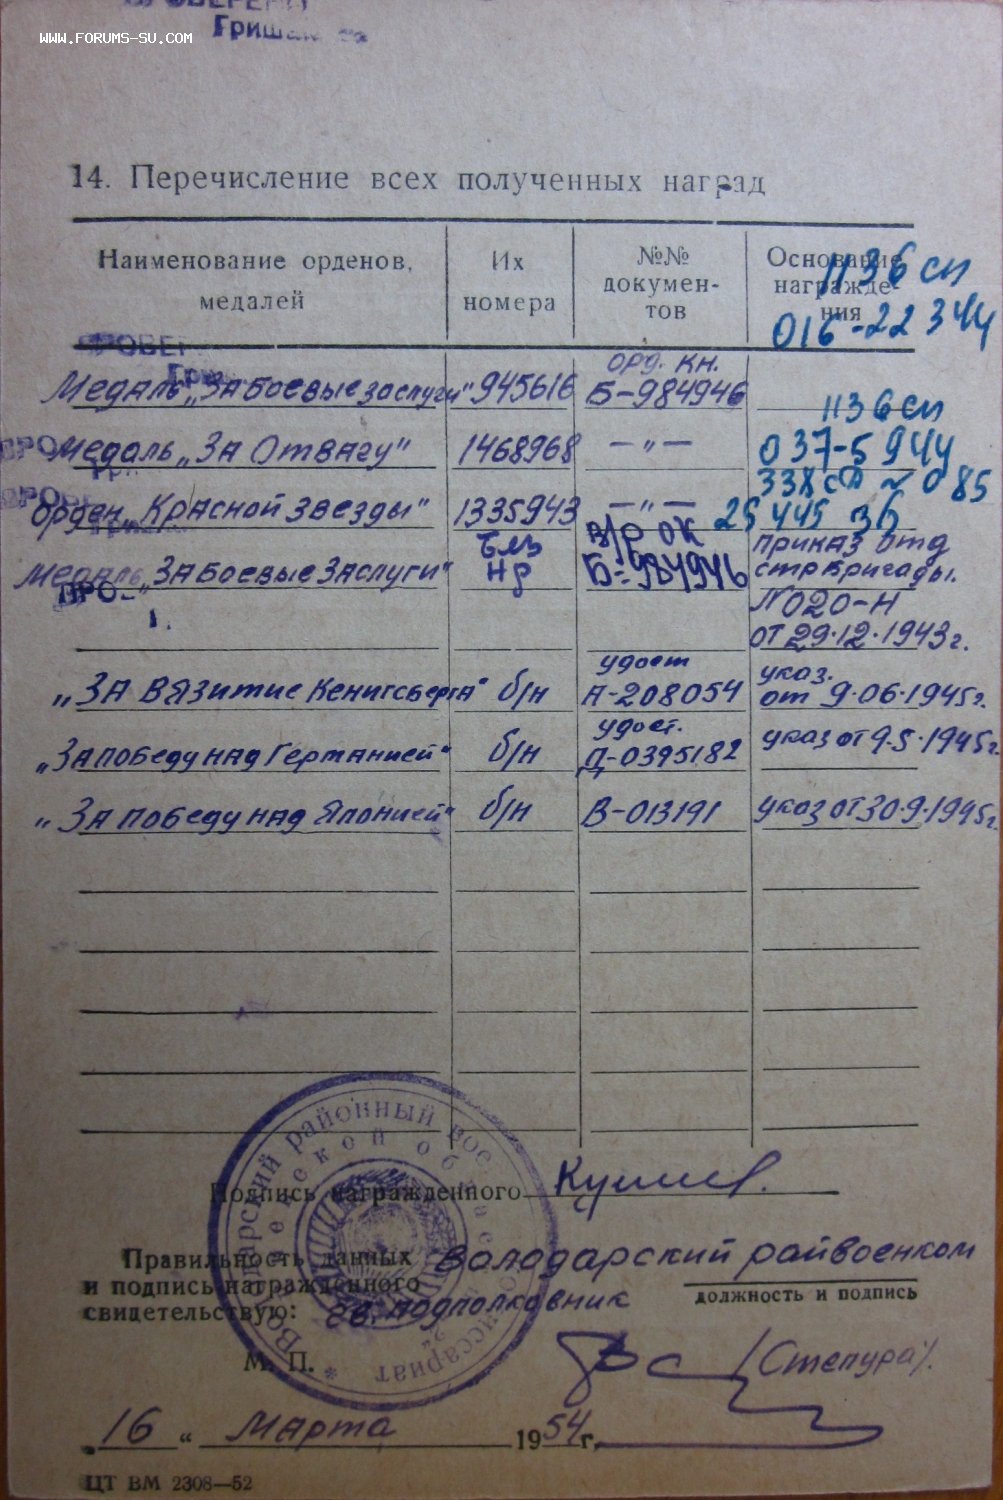 WWW.FORUMS-SU.COM
14. Перечисление всех полученных наград
Наименование орденов, медалей
Их номера
№№ документов
Основание награждения
1136 сп
016-22344
орд. кн.
Медаль „За Боевые заслуги" 945616 Б-984946
1136 сп
Медаль „За Отвагу" 1468968 — „ — 037-5944
338 сд № 085
орден „Красной Звезды" 1335943 — „ — 25 445 36
Без в/р ок приказ отд
Медаль „За Боевые Заслуги" нр Б-984946 стр бригады.
№020-Н
от 29.12.1943г.
удост указ.
„За Взятие Кенигсберга" б/н А-208054 от 9.06.1945г.
удост.
„За победу над Германией" б/н Д-0395182 указ от 9.5.1945г.
„За победу над Японией" б/н В-013191 указ от 30.9.1945г.
Подпись награжденного
Правильность данных Володарский райвоенком
и подпись награжденного
должность и подпись
свидетельствую: гв. подполковник
М. П. (Степура).
„16 " Марта 1954 г.
ЦТ ВМ 2308—52